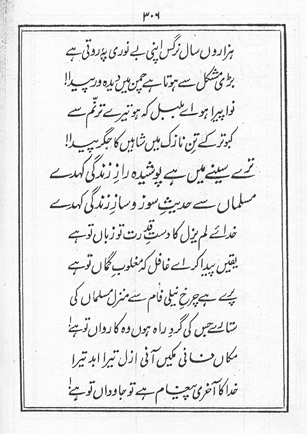 ۳۰۶
ہزاروں سال نرگس اپنی بے نوری پہ روتی ہے
بڑی مشکل سے ہوتا ہے چمن میں دیدہ ور پیدا!
نوا پیرا ہو اے بلبل کہ ہو تیرے ترنّم سے
کبوتر کے تنِ نازک میں شاہیں کا جگر پیدا!
ترے سینے میں ہے پوشیدہ رازِ زندگی کہدے
مسلماں سے حدیثِ سوز و سازِ زندگی کہدے
خدائے لم یزل کا دستِ قدرت تو زباں تو ہے
یقیں پیدا کر اے غافل کہ مغلوبِ گماں تو ہے
پرے ہے چرخِ نیلی فام سے منزل مسلماں کی
ستارے جس کی گردِ راہ ہوں وہ کارواں تو ہے!
مکاں فانی مکیں آنی ازل تیرا ابد تیرا
خدا کا آخری پیغام ہے تو جاوداں تو ہے!